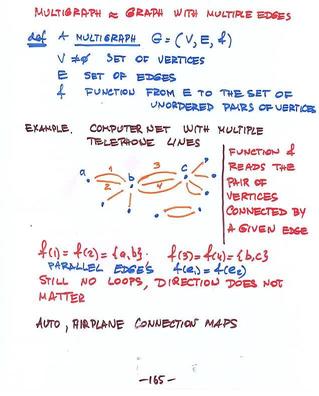 MULTIGRAPH ≈ GRAPH WITH MULTIPLE EDGES
def A MULTIGRAPH G = (V, E, f)
V ≠ ∅ SET OF VERTICES
E SET OF EDGES
f FUNCTION FROM E TO THE SET OF
UNORDERED PAIRS OF VERTICES
EXAMPLE. COMPUTER NET WITH MULTIPLE
TELEPHONE LINES
a 1 2 b 3 4 c
FUNCTION f
READS THE
PAIR OF
VERTICES
CONNECTED BY
A GIVEN EDGE
f(1) = f(2) = {a,b}. f(3) = f(4) = {b,c}
PARALLEL EDGES f(e₁) = f(e₂)
STILL NO LOOPS, DIRECTION DOES NOT
MATTER
AUTO, AIRPLANE CONNECTION MAPS
-165-